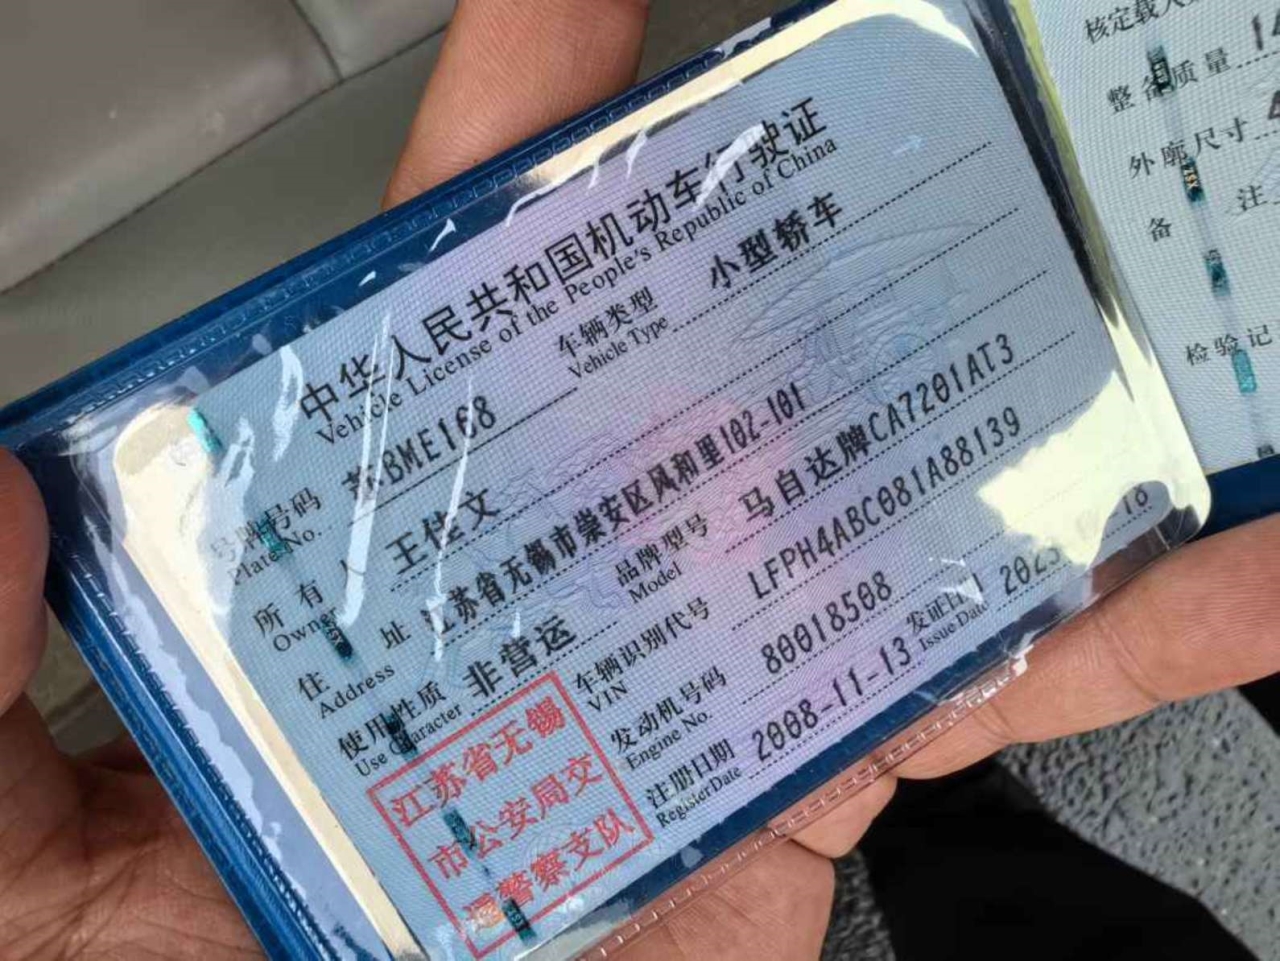 中华人民共和国机动车行驶证
Vehicle License of the People's Republic of China
号牌号码 苏BME168 车辆类型 小型轿车
Plate No. Vehicle Type
所有人 王佳文
Owner
住址 江苏省无锡市崇安区风和里102-101
Address
使用性质 非营运 品牌型号 马自达牌CA7201AT3
Use Character Model
车辆识别代号 LFPH4ABC081A88139
VIN
发动机号码 80018508
Engine No.
注册日期 2008-11-13 发证日期 2023
Register Date Issue Date
江苏省无锡
市公安局交
通警察支队
核定载人
整备质量
外廓尺寸
备注
检验记